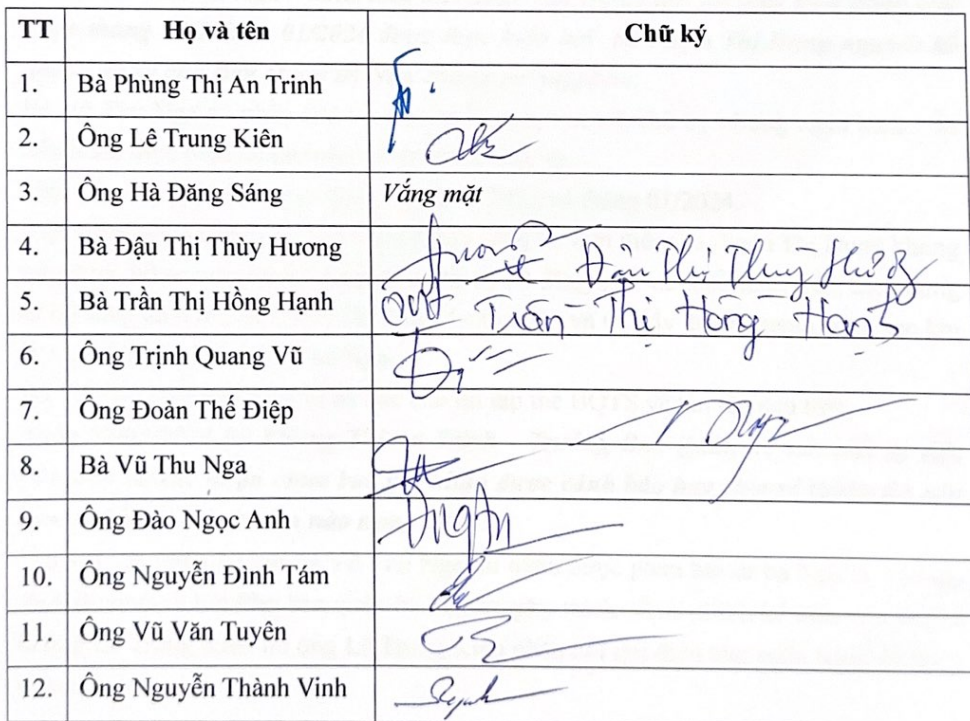 TT Họ và tên Chữ ký
1. Bà Phùng Thị An Trinh
2. Ông Lê Trung Kiên
3. Ông Hà Đăng Sáng Vắng mặt
4. Bà Đậu Thị Thùy Hương Đậu Thị Thùy Hương
5. Bà Trần Thị Hồng Hạnh Trần Thị Hồng Hạnh
6. Ông Trịnh Quang Vũ
7. Ông Đoàn Thế Điệp
8. Bà Vũ Thu Nga
9. Ông Đào Ngọc Anh
10. Ông Nguyễn Đình Tám
11. Ông Vũ Văn Tuyên
12. Ông Nguyễn Thành Vinh